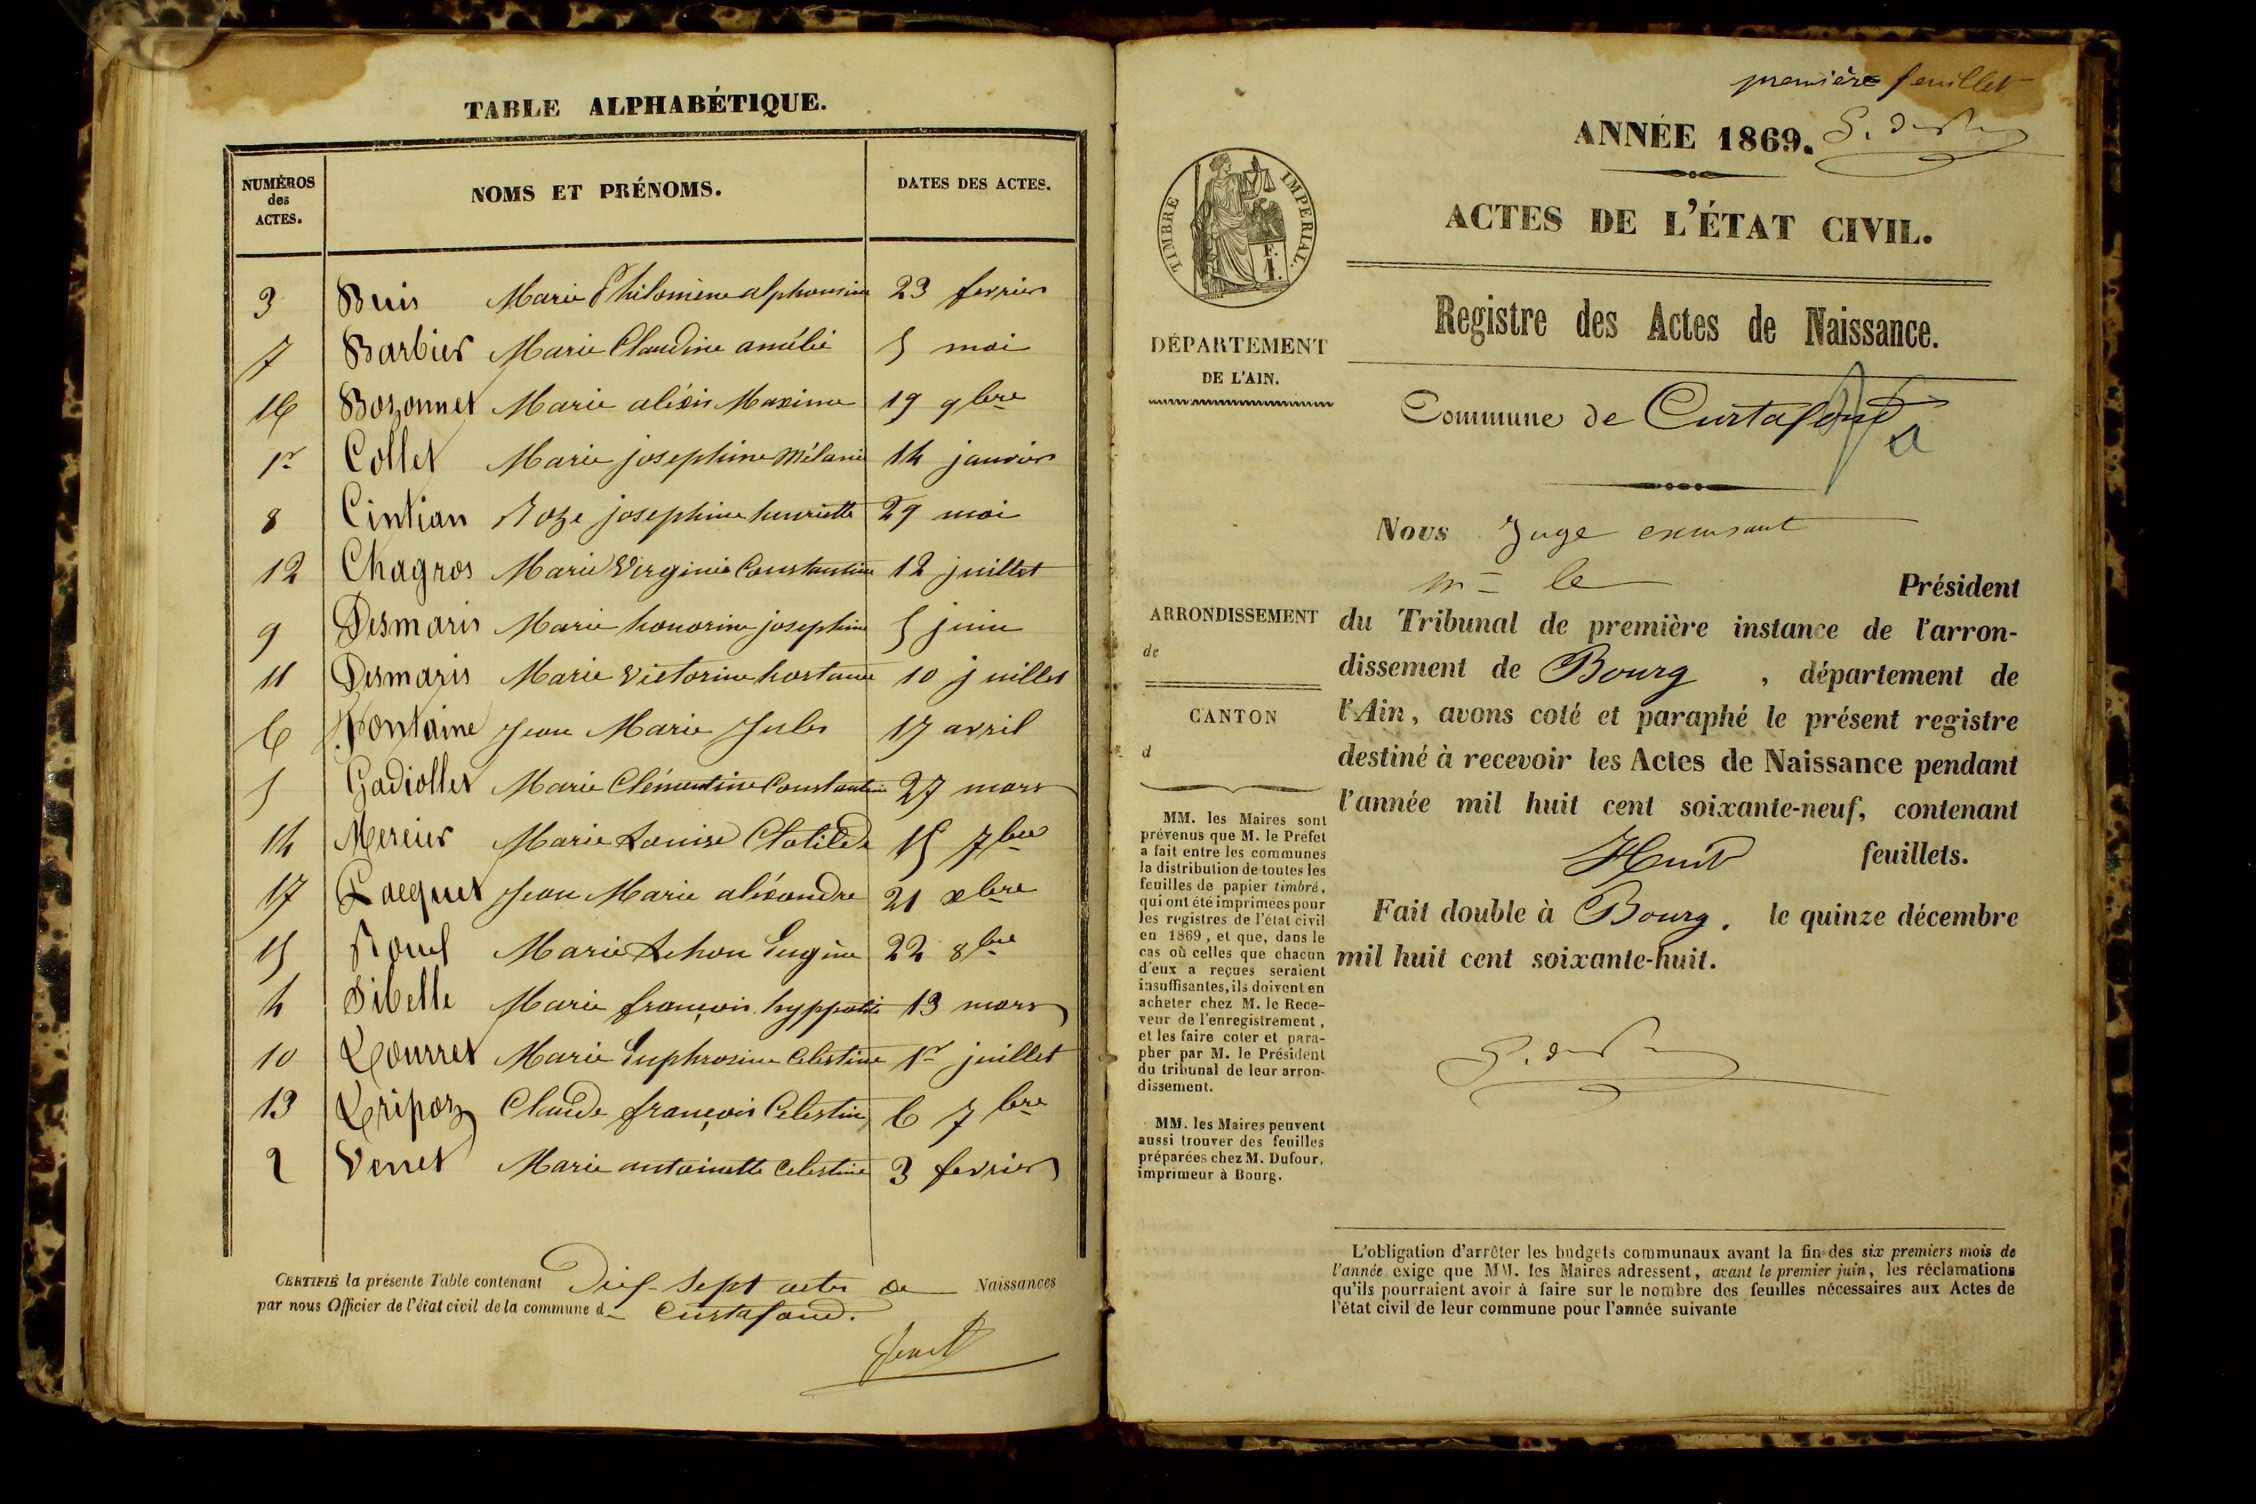 TABLE ALPHABÉTIQUE.
NUMÉROS des ACTES. NOMS ET PRÉNOMS. DATES DES ACTES.
3 Buis Marie Philomène alphonsine 23 fevrier
7 Barbier Marie Claudine amélie 5 mai
16 Bozonnet Marie aléxis Maxime 19 9bre
1er Collet Marie josephine Mélanie 14 janvier
8 Cintian Roze josephine henriette 29 mai
12 Chagros Marie Virginie Constantine 12 juillet
9 Desmaris Marie honorine josephine 5 juin
11 Desmaris Marie Victorine hortance 10 juillet
6 Fontaine Jean Marie Jules 17 avril
5 Gadiollet Marie Clémentine Constantine 27 mars
14 Mercier Marie Louise Clotilde 15 7bre
17 Pacquet Jean Marie aléxandre 21 xbre
15 Marie Eugène 22 8bre
4 Sibelle Marie françois hyppolite 13 mars
10 Tourret Marie Euphrosine Celestine 1er juillet
13 Tripoz Claude françois Celestin 6 7bre
2 Venet Marie antoinette Celestine 3 fevrier
CERTIFIÉ la présente Table contenant Dix-Sept actes de Naissances
par nous Officier de l'état civil de la commune de Curtafond.
première feuillet
ANNÉE 1869.
ACTES DE L'ÉTAT CIVIL.
TIMBRE IMPERIAL.
Registre des Actes de Naissance.
DÉPARTEMENT
DE L'AIN.
Commune de Curtafond
Nous Juge
mr le Président
ARRONDISSEMENT
de
CANTON
d
du Tribunal de première instance de l'arron-
dissement de Bourg, département de
l'Ain, avons coté et paraphé le présent registre
destiné à recevoir les Actes de Naissance pendant
l'année mil huit cent soixante-neuf, contenant
Huit feuillets.
Fait double à Bourg, le quinze décembre
mil huit cent soixante-huit.
MM. les Maires sont
prévenus que M. le Préfet
a fait entre les communes
la distribution de toutes les
feuilles de papier timbré,
qui ont été imprimées pour
les registres de l'état civil
en 1869, et que, dans le
cas où celles que chacun
d'eux a reçues seraient
insuffisantes, ils doivent en
acheter chez M. le Rece-
veur de l'enregistrement,
et les faire coter et para-
pher par M. le Président
du tribunal de leur arron-
dissement.
MM. les Maires peuvent
aussi trouver des feuilles
préparées chez M. Dufour,
imprimeur à Bourg.
L'obligation d'arrêter les budgets communaux avant la fin des six premiers mois de
l'année exige que MM. les Maires adressent, avant le premier juin, les réclamations
qu'ils pourraient avoir à faire sur le nombre des feuilles nécessaires aux Actes de
l'état civil de leur commune pour l'année suivante